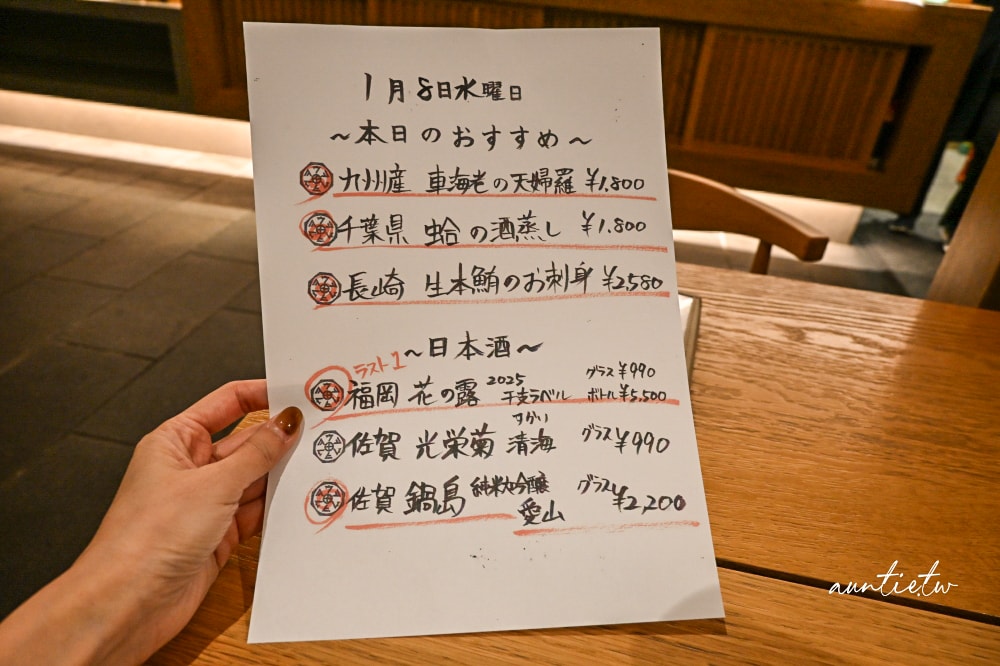 1月8日水曜日
~本日のおすすめ~
九州産 車海老の天婦羅 ¥1,800
千葉県 蛤の酒蒸し ¥1.800
長崎 生本鮪のお刺身 ¥2,580
~日本酒~
ラスト1
福岡 花の露 2025 干支ラベル グラス ¥990 ボトル ¥5,500
佐賀 光栄菊 清海 すかい グラス ¥990
佐賀 鍋島 純米大吟醸 愛山 グラス ¥2,200
auntie.tw